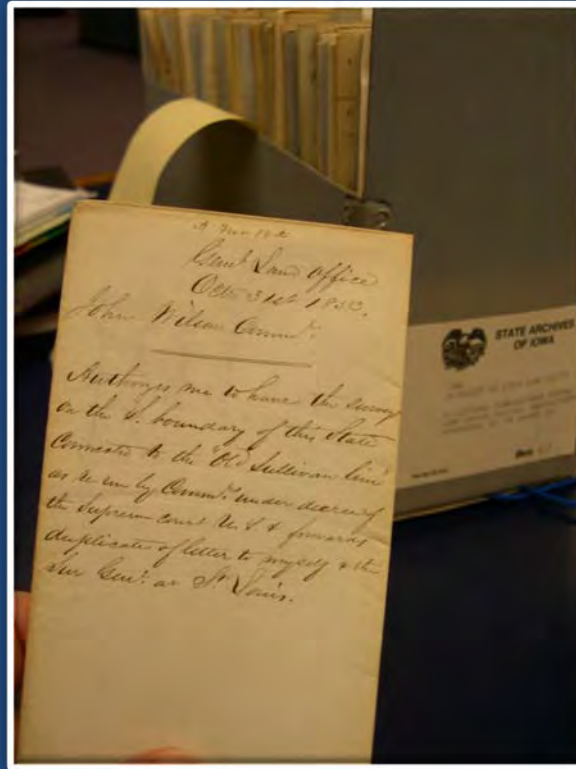 Genl Land Office
Octo 31st 1853.
John Wilson Commr.
Authorizes me to have the surveys
on the S. boundary of this State
Connected to the "Old Sullivan line"
as re run by Commrs under decree of
the Supreme Court U.S. & forwards
duplicate of letter to myself & the
Sur Genl. at St Louis.
STATE ARCHIVES
OF IOWA